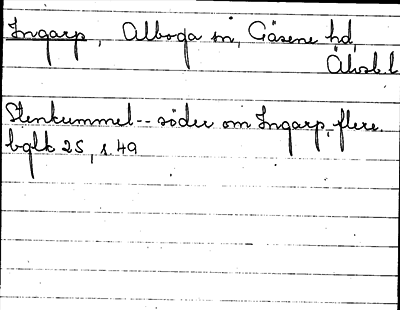 Ingarp, Alboga sn, Gäsene hd,
Älvsb.l
Stenkummel -- söder om Ingarp, flere.
bglb 25, s.49